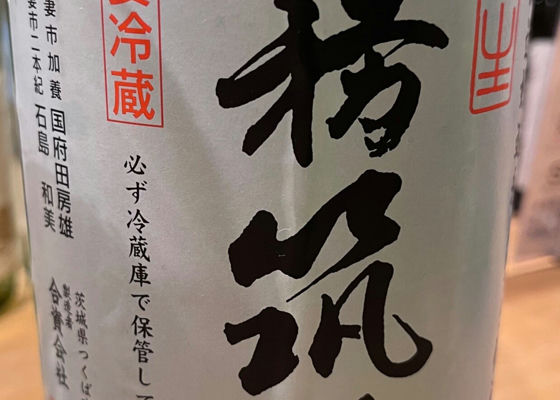 生
霧筑
要冷蔵
必ず冷蔵庫で保管して
妻市加養 国府田房雄
妻市二本紀 石島 和美
茨城県つくば
製造者
合資会社